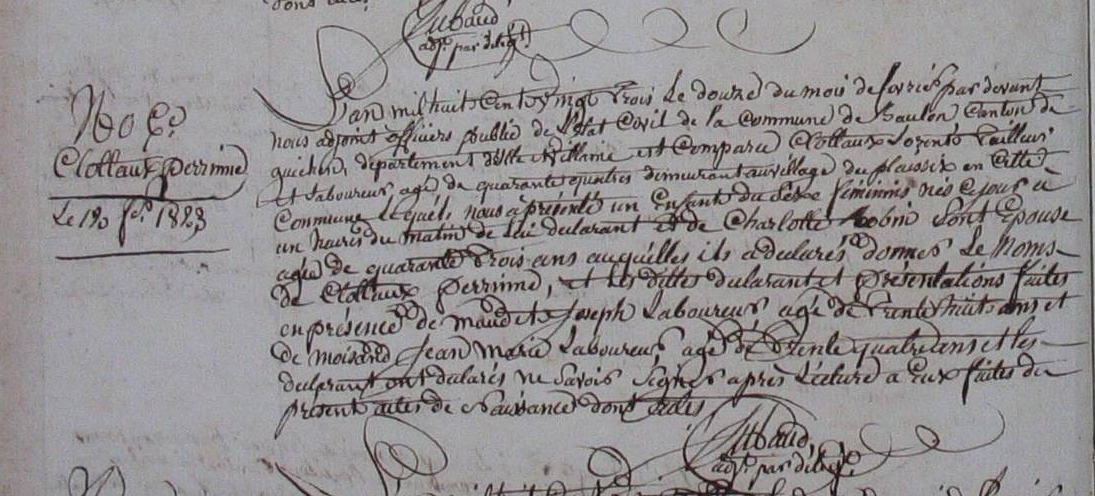 Dubaud
adj. par délégt.
No 6e
Clollaux perrinne
Le 12 fer. 1823
L'an mil huit cent vingt trois Le douze du mois de fevrier par devant
nous adjoint officiers public de L'Etat Civil de la Commune de Baulon Canton de
guichen, departement d'ille et villaine est Comparu Clollaux Lorents tailleur
et Laboureur, agé de quarante quatres demurant au village du plaissix en Cette
Commune Lequels nous a présenté un Enfants du Sexe féminins nés Ce jour à
un heures du matin de Lui declarant et de Charlotte Robin Sont Epouse
agée de quarante trois ans auquelles ils a declarés donner Le Noms
de Clollaux perrinne, et Les dittes declarant et présentations faites
en présence de Joseph Laboureur agé de trente huits ans et
de Jean Marie Laboureur agé de trente quatre ans et les
declarant ont declarés ne Savoir Signer après Lecture a Eux faites du
présent actes de Naissance dont
Dubaud,
adj. par délégt.